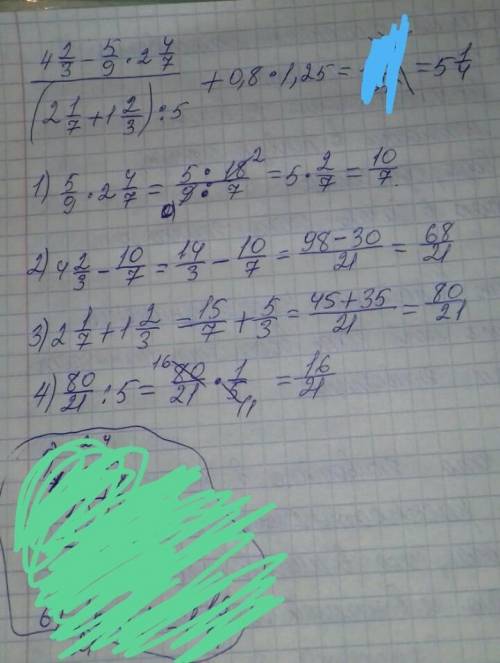 (4 2/3 − 5/9 · 2 4/7) / ((2 1/7 + 1 2/3) : 5) + 0,8 · 1,25 = = 5 1/4
1) 5/9 · 2 4/7 = (5 · 18)/(9 · 7) = 5 · 2/7 = 10/7
2) 4 2/3 − 10/7 = 14/3 − 10/7 = (98 − 30)/21 = 68/21
3) 2 1/7 + 1 2/3 = 15/7 + 5/3 = (45 + 35)/21 = 80/21
4) 80/21 : 5 = 80/21 · 1/5 = 16/21